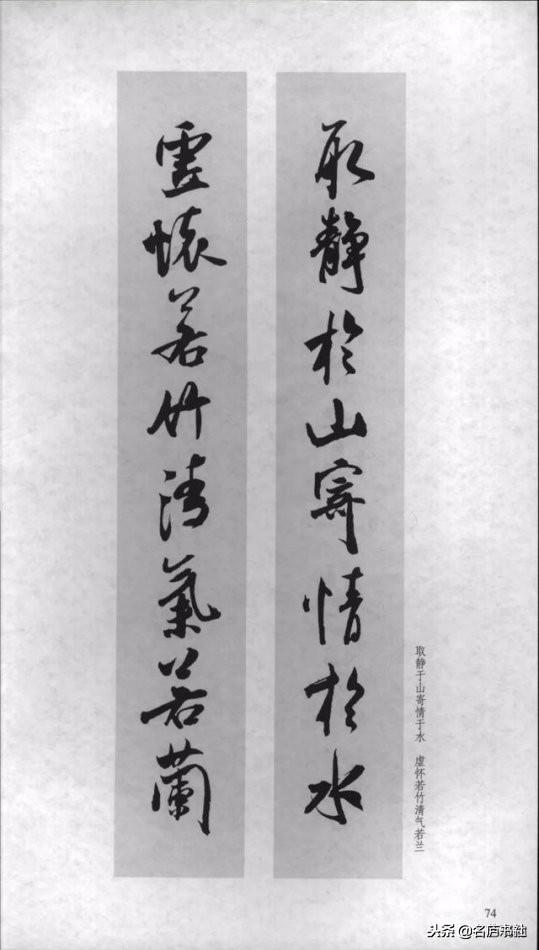 取静於山寄情於水
虚懷若竹清氣若蘭
取静于山寄情于水 虚怀若竹清气若兰
74
头条 @名庐书社